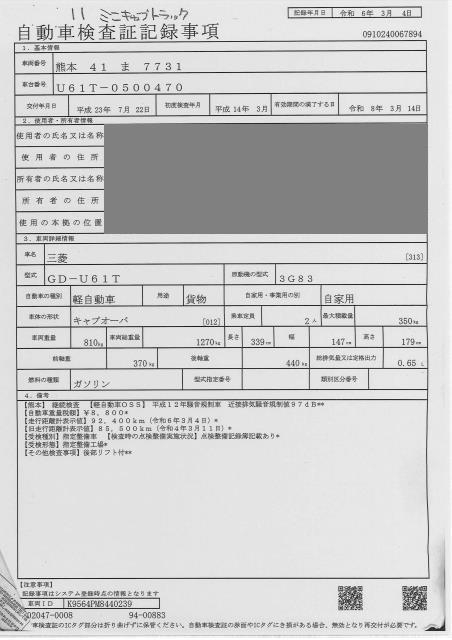 11 ミニキャブトラック
記録年月日 令和 6年 3月 4日
自動車検査証記録事項
0910240067894
1．基本情報
車両番号 熊本 41 ま 7731
車台番号 U61T-0500470
交付年月日 平成 23年 7月 22日 初度検査年月 平成 14年 3月 有効期間の満了する日 令和 8年 3月 14日
2．使用者・所有者情報
使用者の氏名又は名称
使用者の住所
所有者の氏名又は名称
所有者の住所
使用の本拠の位置
3．車両詳細情報
車名 三菱 [313]
型式 GD-U61T 原動機の型式 3G83
自動車の種別 軽自動車 用途 貨物 自家用・事業用の別 自家用
車体の形状 キャブオーバ [012] 乗車定員 2人 最大積載量 350kg
車両重量 810kg 車両総重量 1270kg 長さ 339cm 幅 147cm 高さ 179cm
前軸重 370kg 後軸重 440kg 総排気量又は定格出力 0.65 L
燃料の種類 ガソリン 型式指定番号 類別区分番号
4．備考
【熊本】 継続検査 【軽自動車OSS】 平成12年騒音規制車 近接排気騒音規制値97dB**
【自動車重量税額】¥8,800*
【走行距離計表示値】92,400km（令和6年3月4日）*
【旧走行距離計表示値】85,500km（令和4年3月11日）*
【受検種別】指定整備車 【検査時の点検整備実施状況】点検整備記録簿記載あり*
【受検形態】指定整備工場*
【その他検査事項】後部リフト付**
【注意事項】
記録事項はシステム登録時点の情報となります
車両ID K9564PM8440239
02047-0008 94-00883
車検査証のICタグ部分は折り曲げずに保管ください。自動車検査証の券面やICタグにき損がある場合、無効となり再交付が必要です。